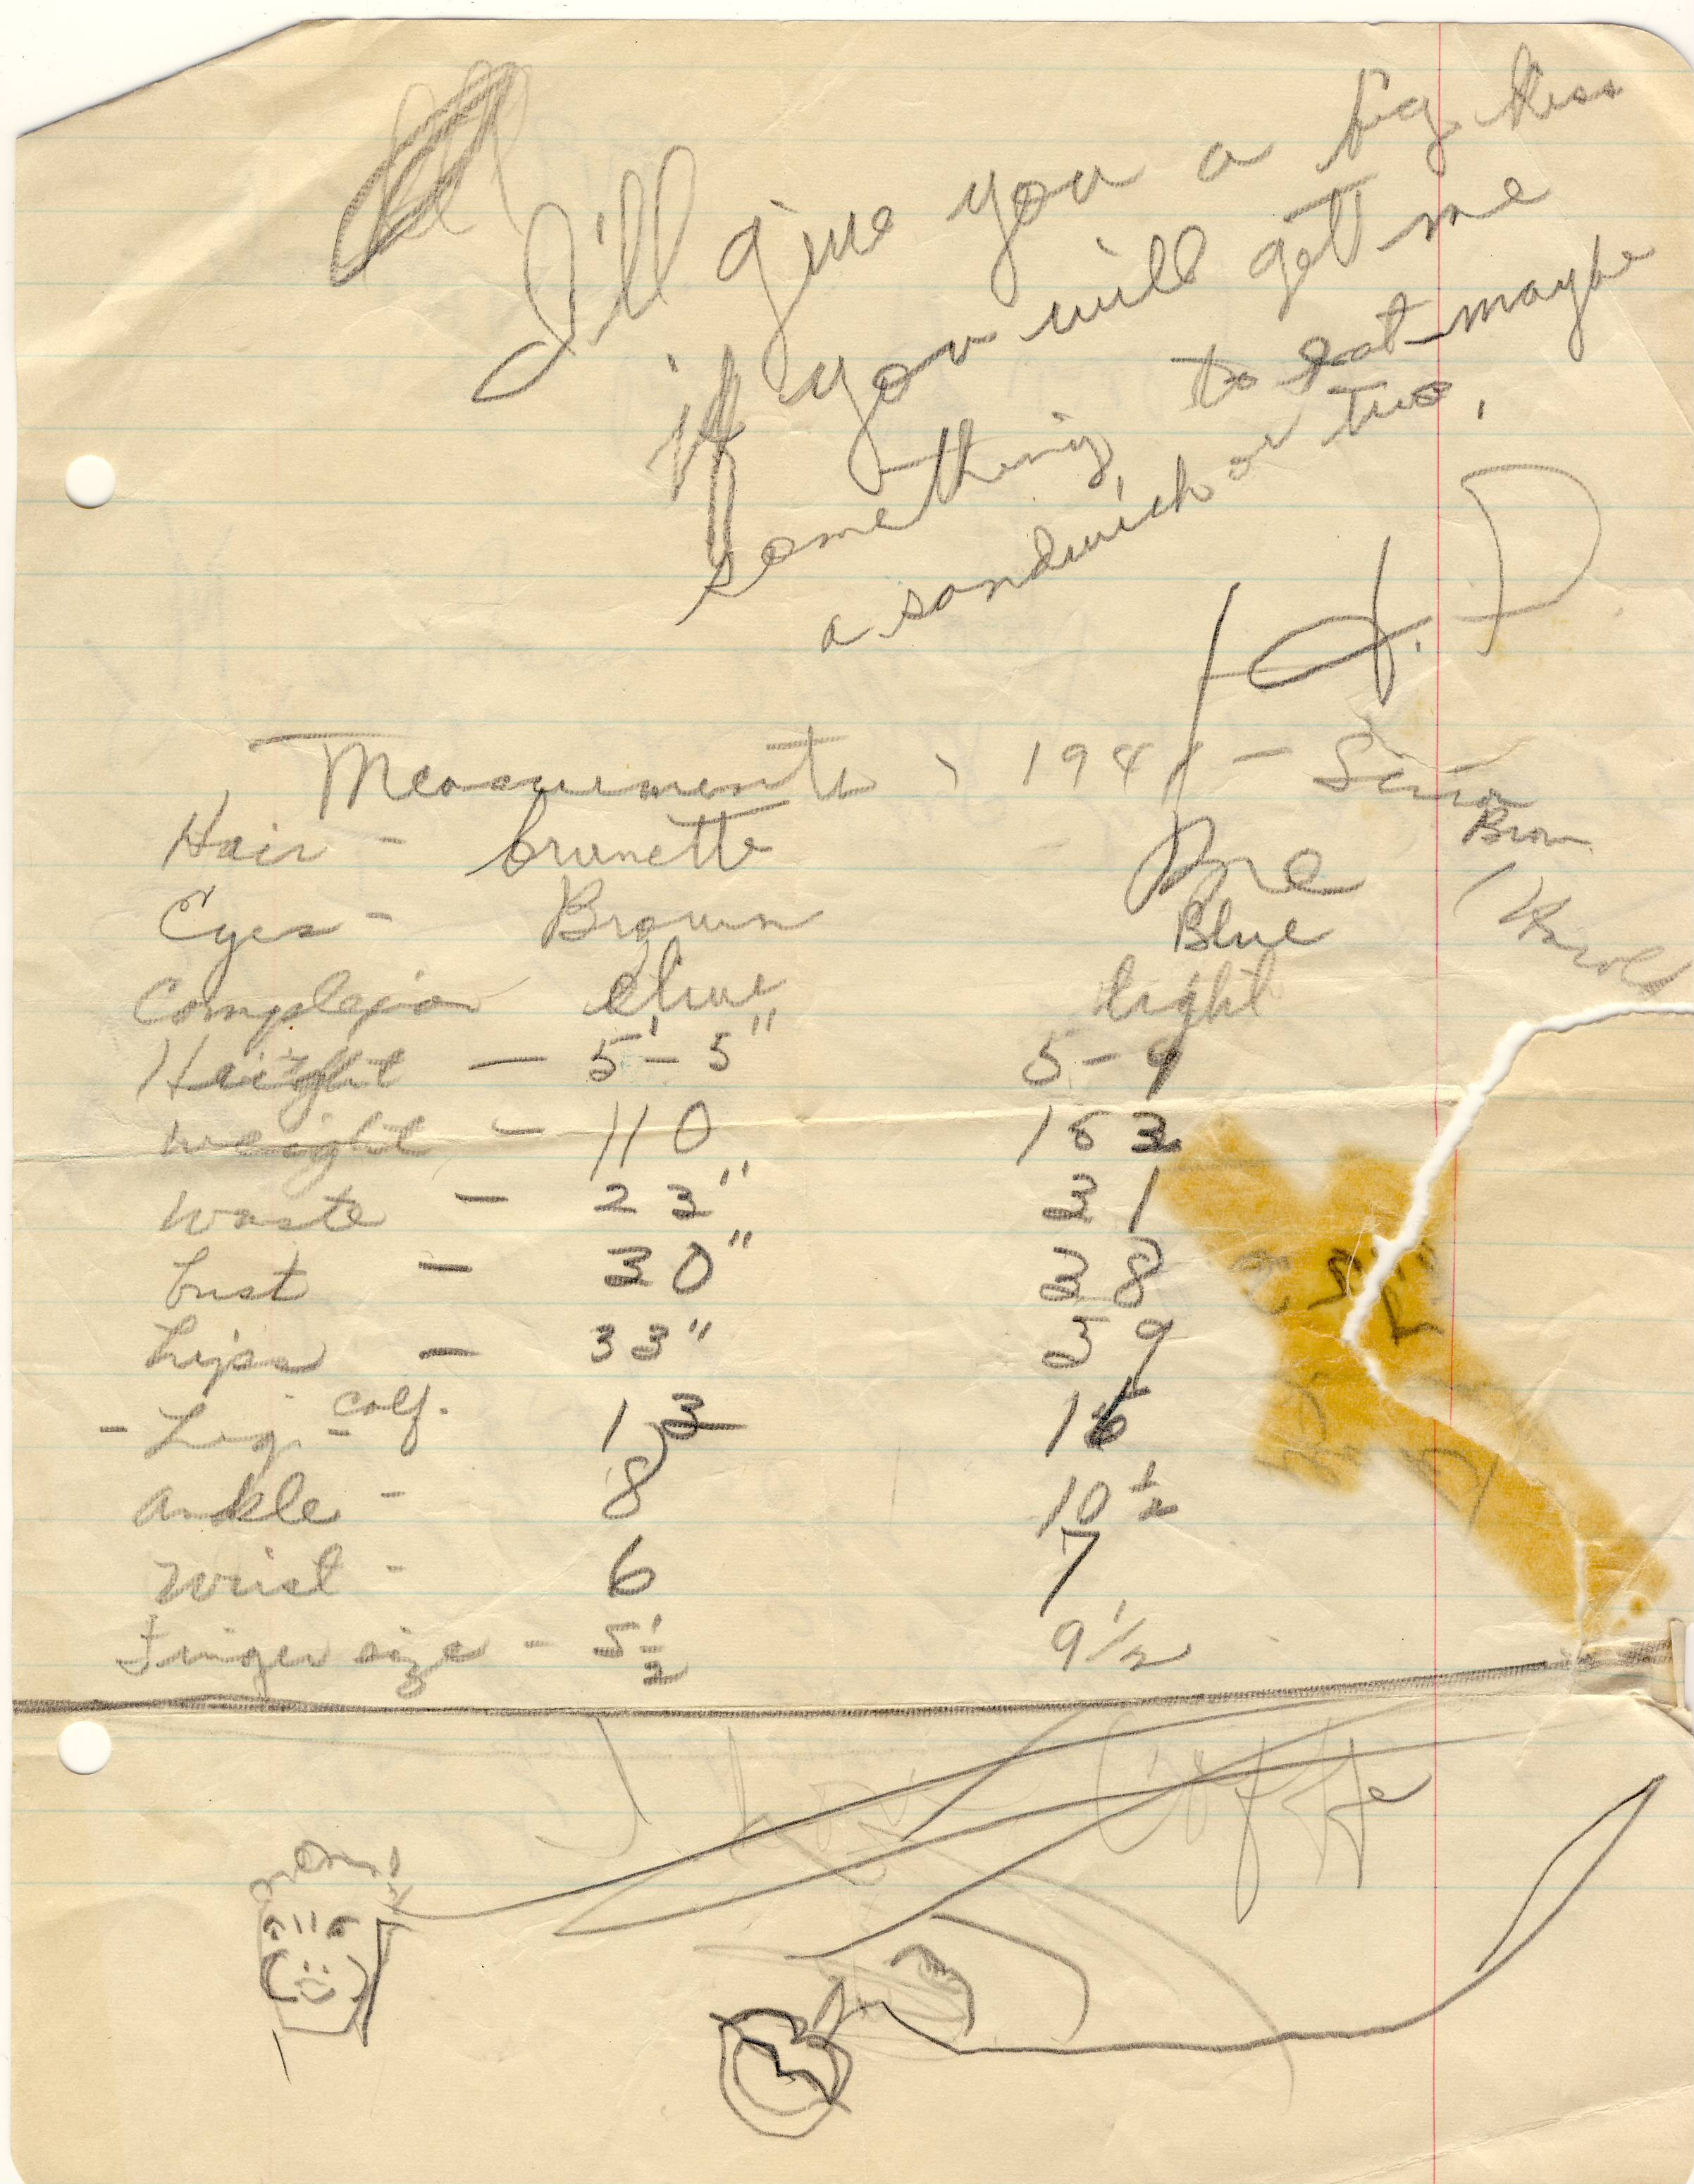 I'll give you a big kiss
if you will get me
something to eat maybe
a sandwich or two.
H. D.
Measurements, 194
Hair - brunette
Brow
Eyes - Brown Blue
Complexion olive light
Height - 5'-5" 5-9
weight - 110 153
waste - 23" 31
bust - 30" 38
hips - 33" 39
- Leg - calf. 13 16
ankle - 8 10 1/2
wrist - 6 7
Finger size - 5 1/2 9 1/2
I love Coffe
mom!